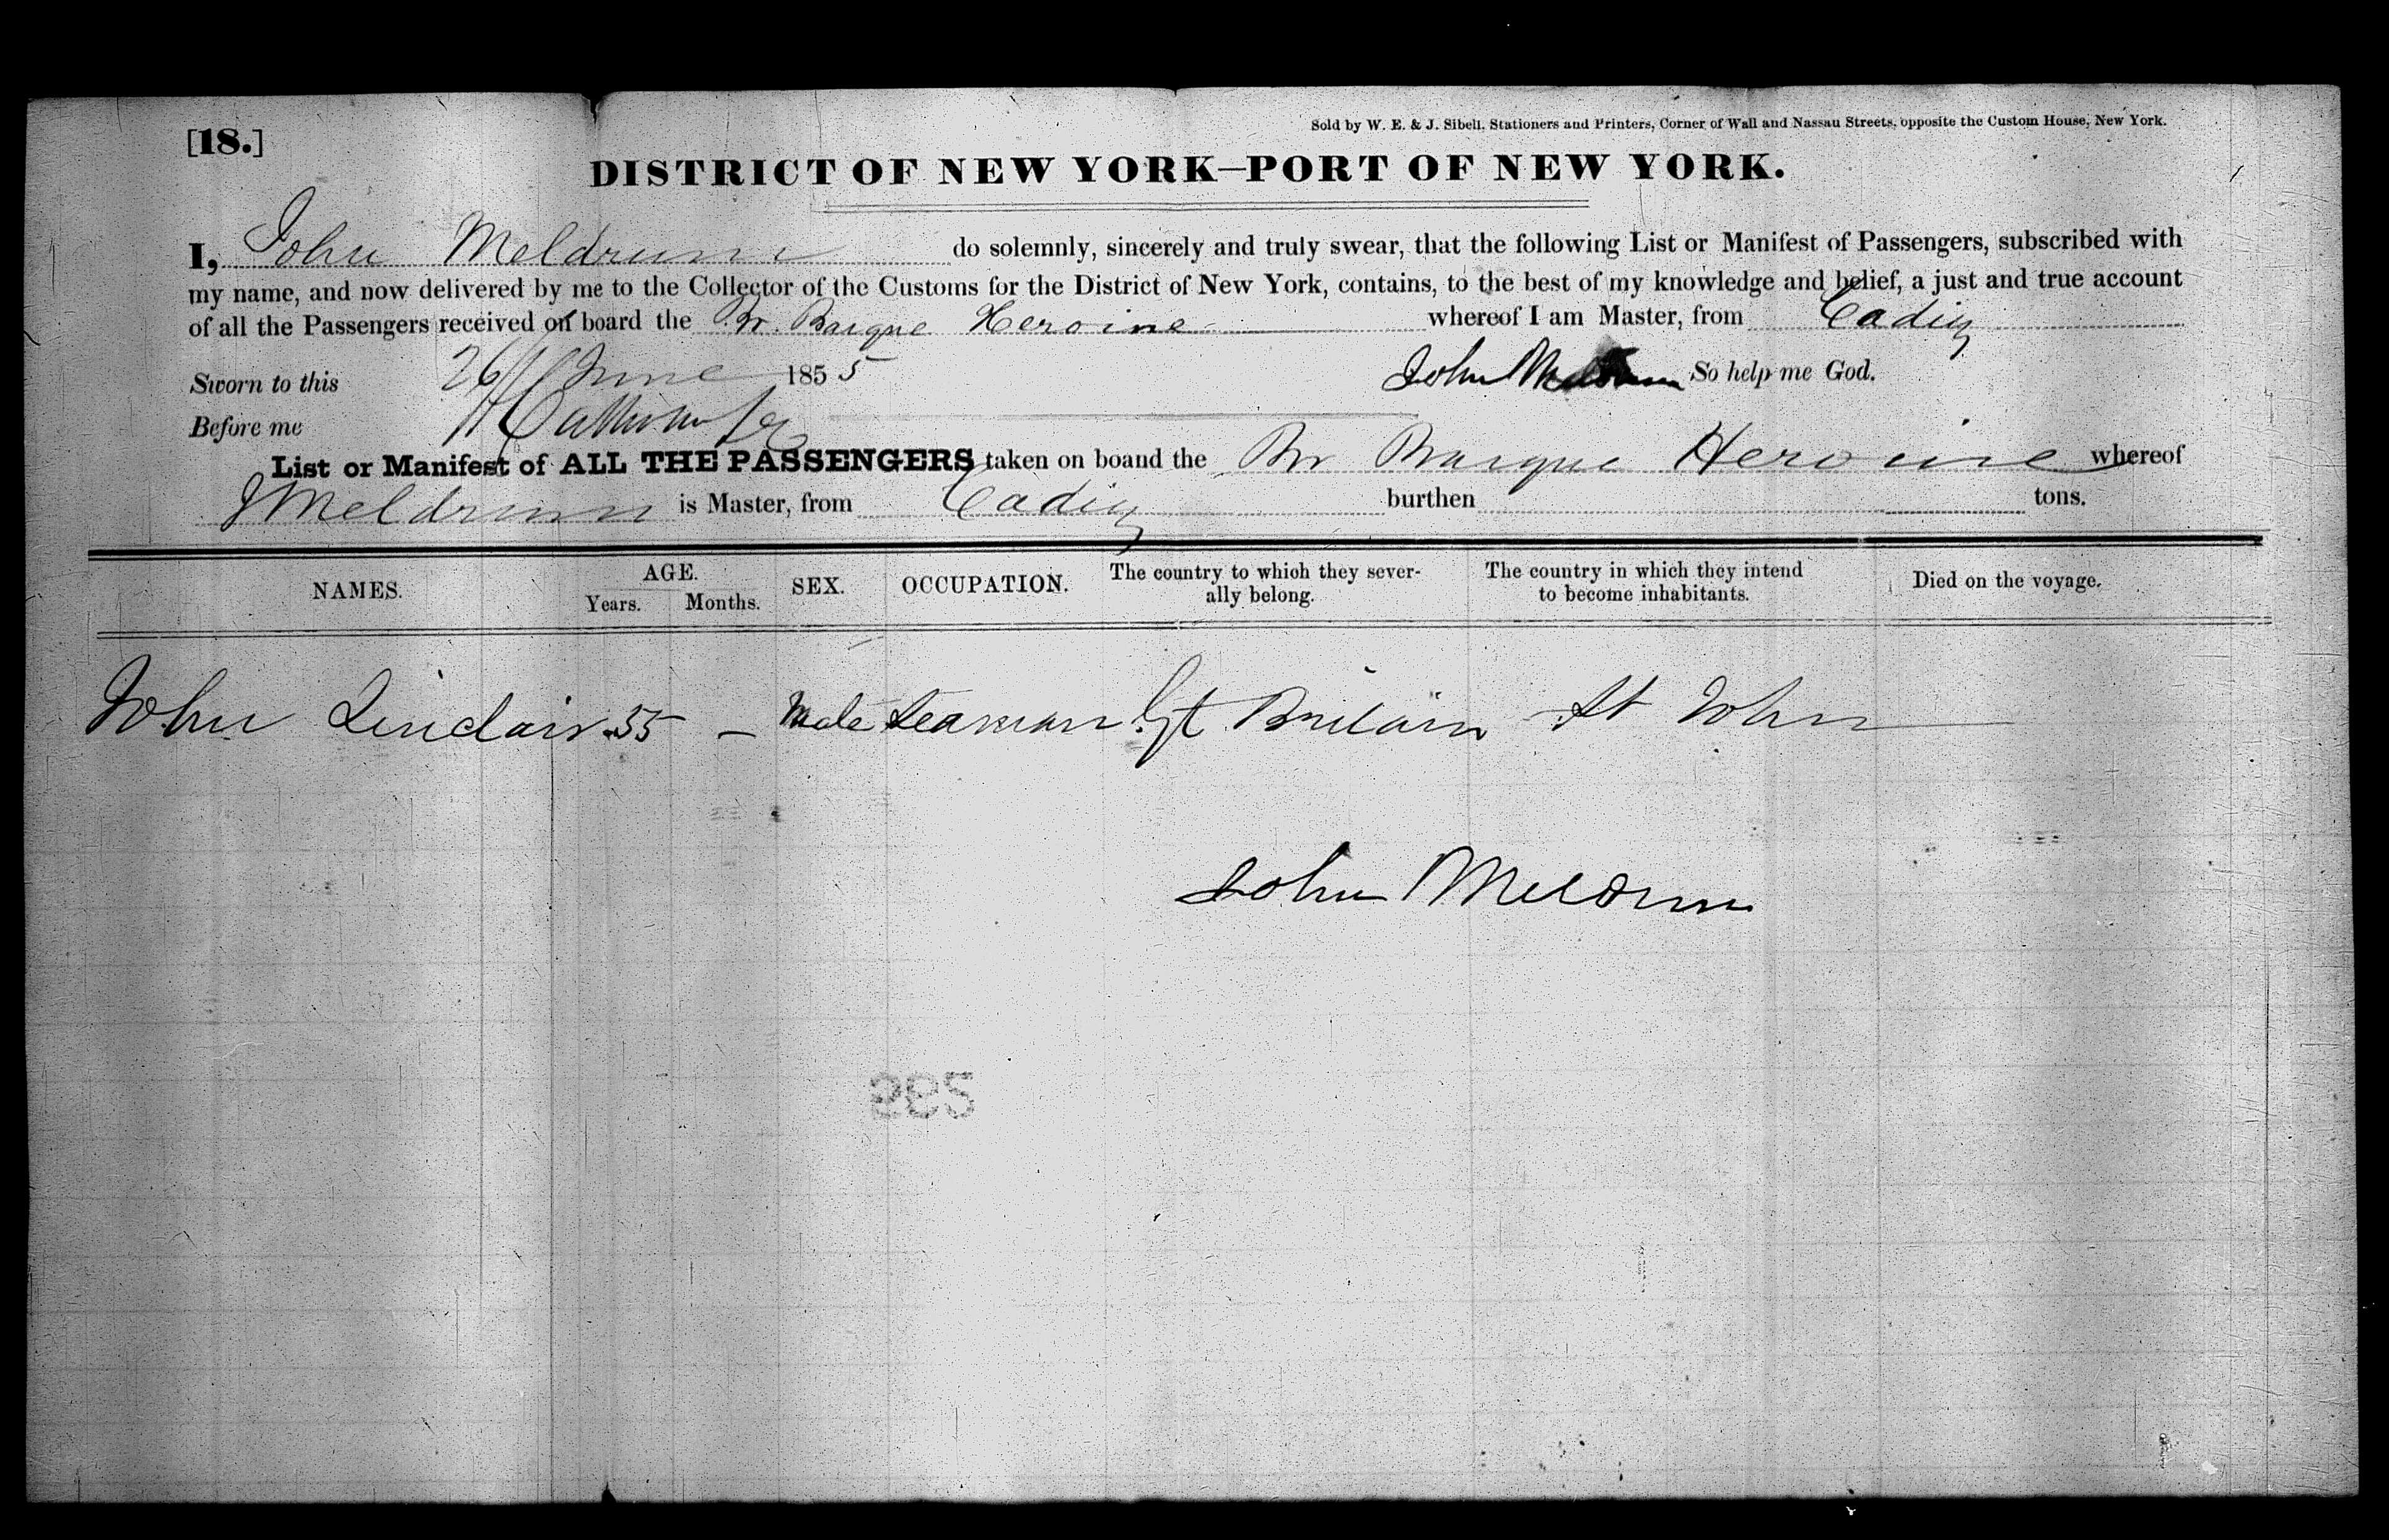 [18.]
Sold by W. E. & J. Sibell, Stationers and Printers, Corner of Wall and Nassau Streets, opposite the Custom House, New York.
DISTRICT OF NEW YORK—PORT OF NEW YORK.
I, John Meldrum do solemnly, sincerely and truly swear, that the following List or Manifest of Passengers, subscribed with
my name, and now delivered by me to the Collector of the Customs for the District of New York, contains, to the best of my knowledge and belief, a just and true account
of all the Passengers received on board the Br. Barque Heroine whereof I am Master, from Cadiz
Sworn to this 26 June 1855 John Meldrum So help me God.
Before me
List or Manifest of ALL THE PASSENGERS taken on boand the Br Barque Heroine whereof
J Meldrum is Master, from Cadiz burthen tons.
NAMES. AGE. Years. Months. SEX. OCCUPATION. The country to which they sever-ally belong. The country in which they intend to become inhabitants. Died on the voyage.
John Sinclair 55 – Male Seaman Gt Britain St John
John Meldrum
295